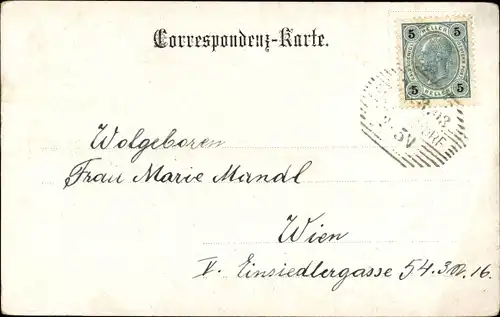 Correspondenz-Karte.
5 HELLER 5
5 HELLER 5
Wolgeboren
Frau Marie Mandl
Wien
V. Einsiedlergasse 54. 16.